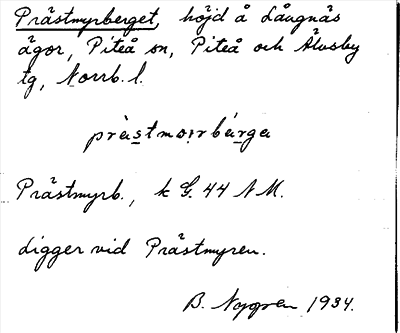 Prästmyrberget, höjd å Långnäs
ägor, Piteå sn, Piteå och Älvsby
tg, Norrb. l.
Prästmyrb., k G. 44 N M.
ligger vid Prästmyren.
B. Nygren 1934.